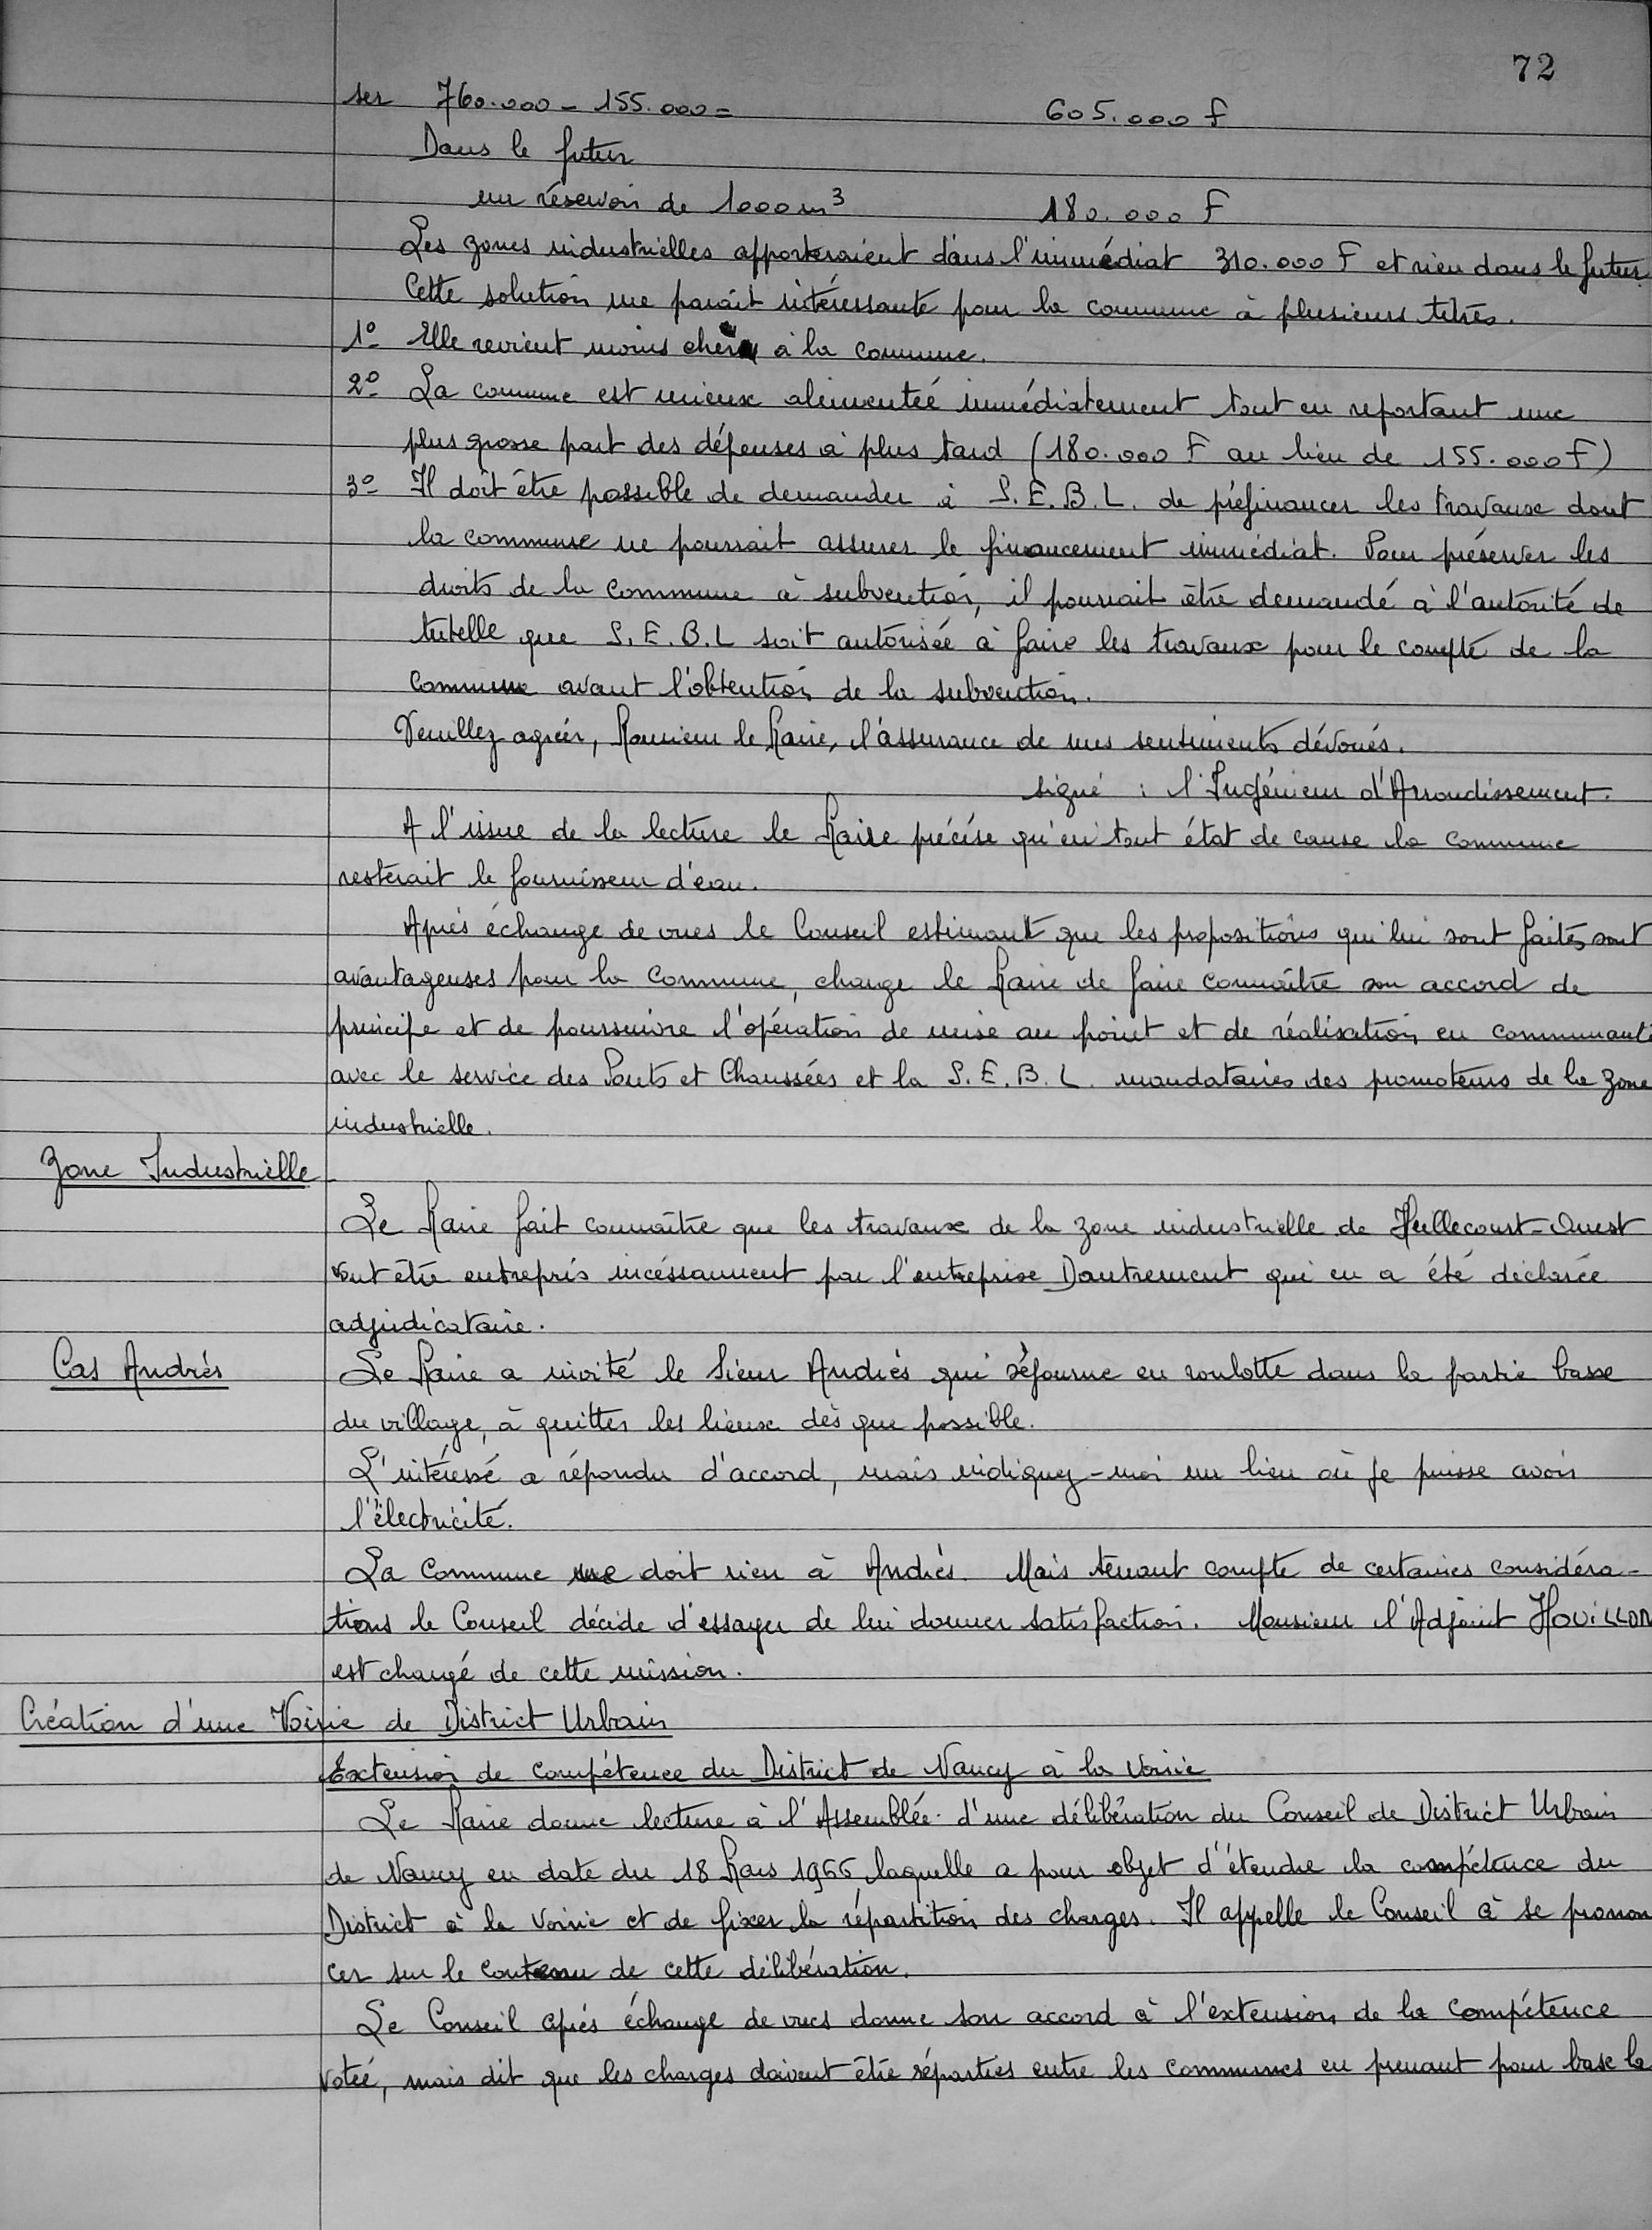 72
ser 760.000 - 155.000 = 605.000 F
Dans le futur
un réservoir de 1000 m³ 180.000 F
Les zones industrielles apporteraient dans l'immédiat 310.000 F et rien dans le futur.
Cette solution me paraît intéressante pour la commune à plusieurs titres.
1º Elle revient moins cher à la commune.
2º La commune est mieux alimentée immédiatement tout en reportant une
plus grosse part des dépenses à plus tard (180.000 F au lieu de 155.000 F)
3º Il doit être possible de demander à S.E.B.L. de préfinancer les travaux dont
la commune ne pourrait assurer le financement immédiat. Pour préserver les
droits de la commune à subvention, il pourrait être demandé à l'autorité de
tutelle que S.E.B.L soit autorisée à faire les travaux pour le compte de la
Commune avant l'obtention de la subvention.
Veuillez agréer, Monsieur le Maire, l'assurance de mes sentiments dévoués.
signé : l'Ingénieur d'Arrondissement.
A l'issue de la lecture le Maire précise qu'en tout état de cause la commune
resterait le fournisseur d'eau.
Après échange de vues le Conseil estimant que les propositions qui lui sont faites sont
avantageuses pour la Commune, charge le Maire de faire connaître son accord de
principe et de poursuivre l'opération de mise au point et de réalisation en communauté
avec le service des Ponts et Chaussées et la S.E.B.L. mandataires des promoteurs de la zone
industrielle.
Zone Industrielle
Le Maire fait connaître que les travaux de la zone industrielle de Heillecourt-Ouest
vont être entrepris incessamment par l'entreprise Dautrement qui en a été déclarée
adjudicataire.
Cas Andrés
Le Maire a invité le Sieur Andrès qui séjourne en roulotte dans la partie basse
du village, à quitter les lieux dès que possible.
L'intéressé a répondu d'accord, mais indiquez-moi un lieu où je puisse avoir
l'électricité.
La Commune ne doit rien à Andrès. Mais tenant compte de certaines considéra-
tions le Conseil décide d'essayer de lui donner satisfaction. Monsieur l'Adjoint HOUILLON
est chargé de cette mission.
Création d'une Voirie de District Urbain
Extension de compétence du District de Nancy à la Voirie
Le Maire donne lecture à l'Assemblée d'une délibération du Conseil de District Urbain
de Nancy en date du 18 Mars 1966 laquelle a pour objet d'étendre la compétence du
District à la Voirie et de fixer la répartition des charges. Il appelle le Conseil à se pronon
cer sur le contenu de cette délibération.
Le Conseil après échange de vues donne son accord à l'extension de la compétence
votée, mais dit que les charges doivent être réparties entre les communes en prenant pour base la